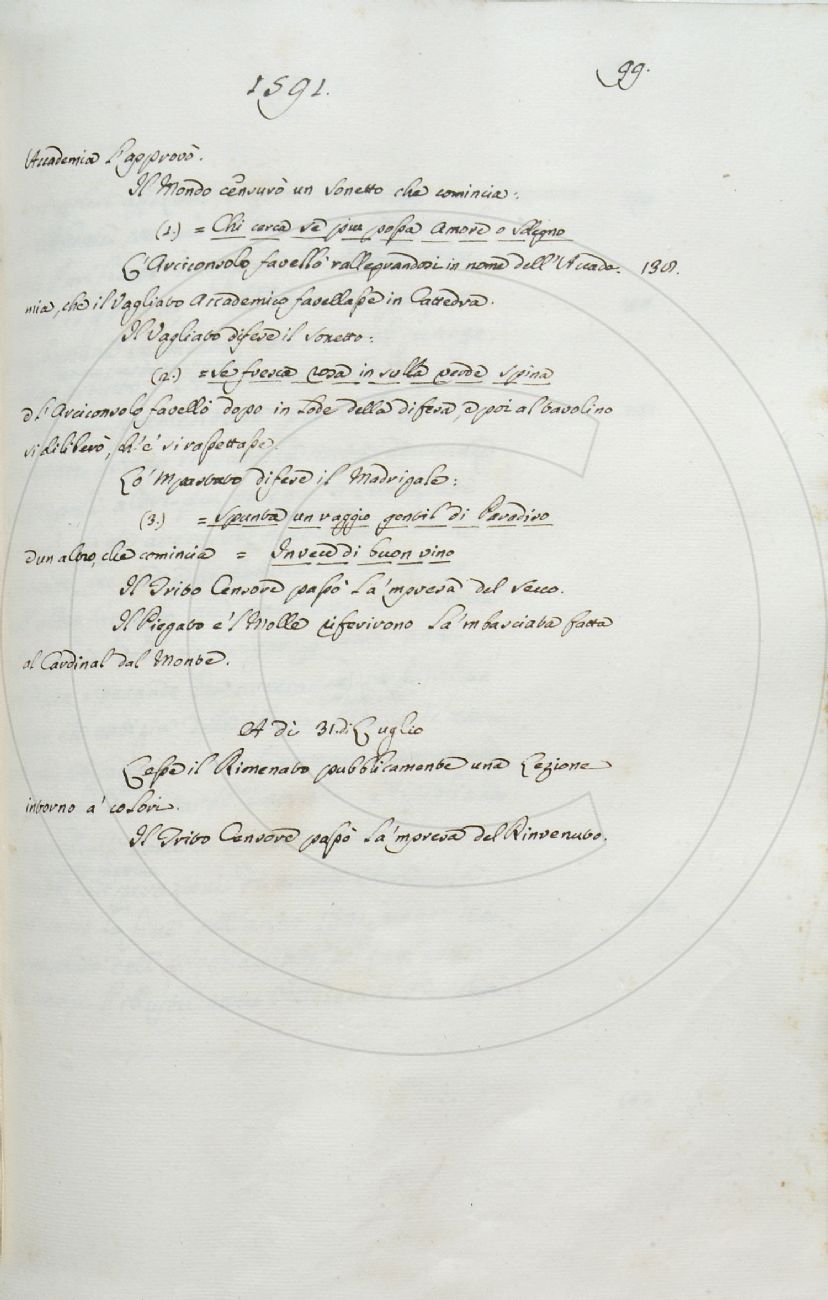 1591.
99.
Accademia l'approvò.
Il Mondo censurò un sonetto che comincia:
(1.) = Chi cerca se più possa Amore o sdegno
L'Arciconsolo favellò rallegrandosi in nome dell'Accade- 138.
mia, che il Vagliato Accademico favellasse in Cattedra.
Il Vagliato difese il sonetto:
(2.) = se fresca rosa in sulla verde spina
e l'Arciconsolo favellò dopo in lode della difesa, e poi al tavolino
si diliberò, ch'e' si rassettasse.
Lo 'Mpastato difese il Madrigale:
(3.) = spunta un raggio gentil di Paradiso
d'un altro, che comincia = Invece di buon vino
Il Trito Censore passò la 'mpresa del secco.
Il Piegato e 'l Molle riferirono la 'mbasciata fatta
al Cardinal dal Monte.
A dì 31. di Luglio
Lesse il Rimenato pubblicamente una Lezione
intorno a' colori.
Il Trito Censore passò la 'mpresa del Rinvenuto.